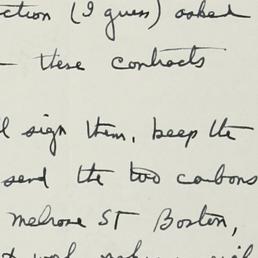 ction (I guess) asked
– these contracts
l sign them, keep the
send the two carbons
melrose ST Boston,